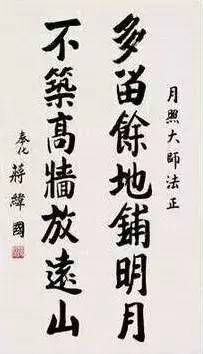 月照大師法正
多留餘地鋪明月
不築高牆放遠山
奉化 蔣緯國